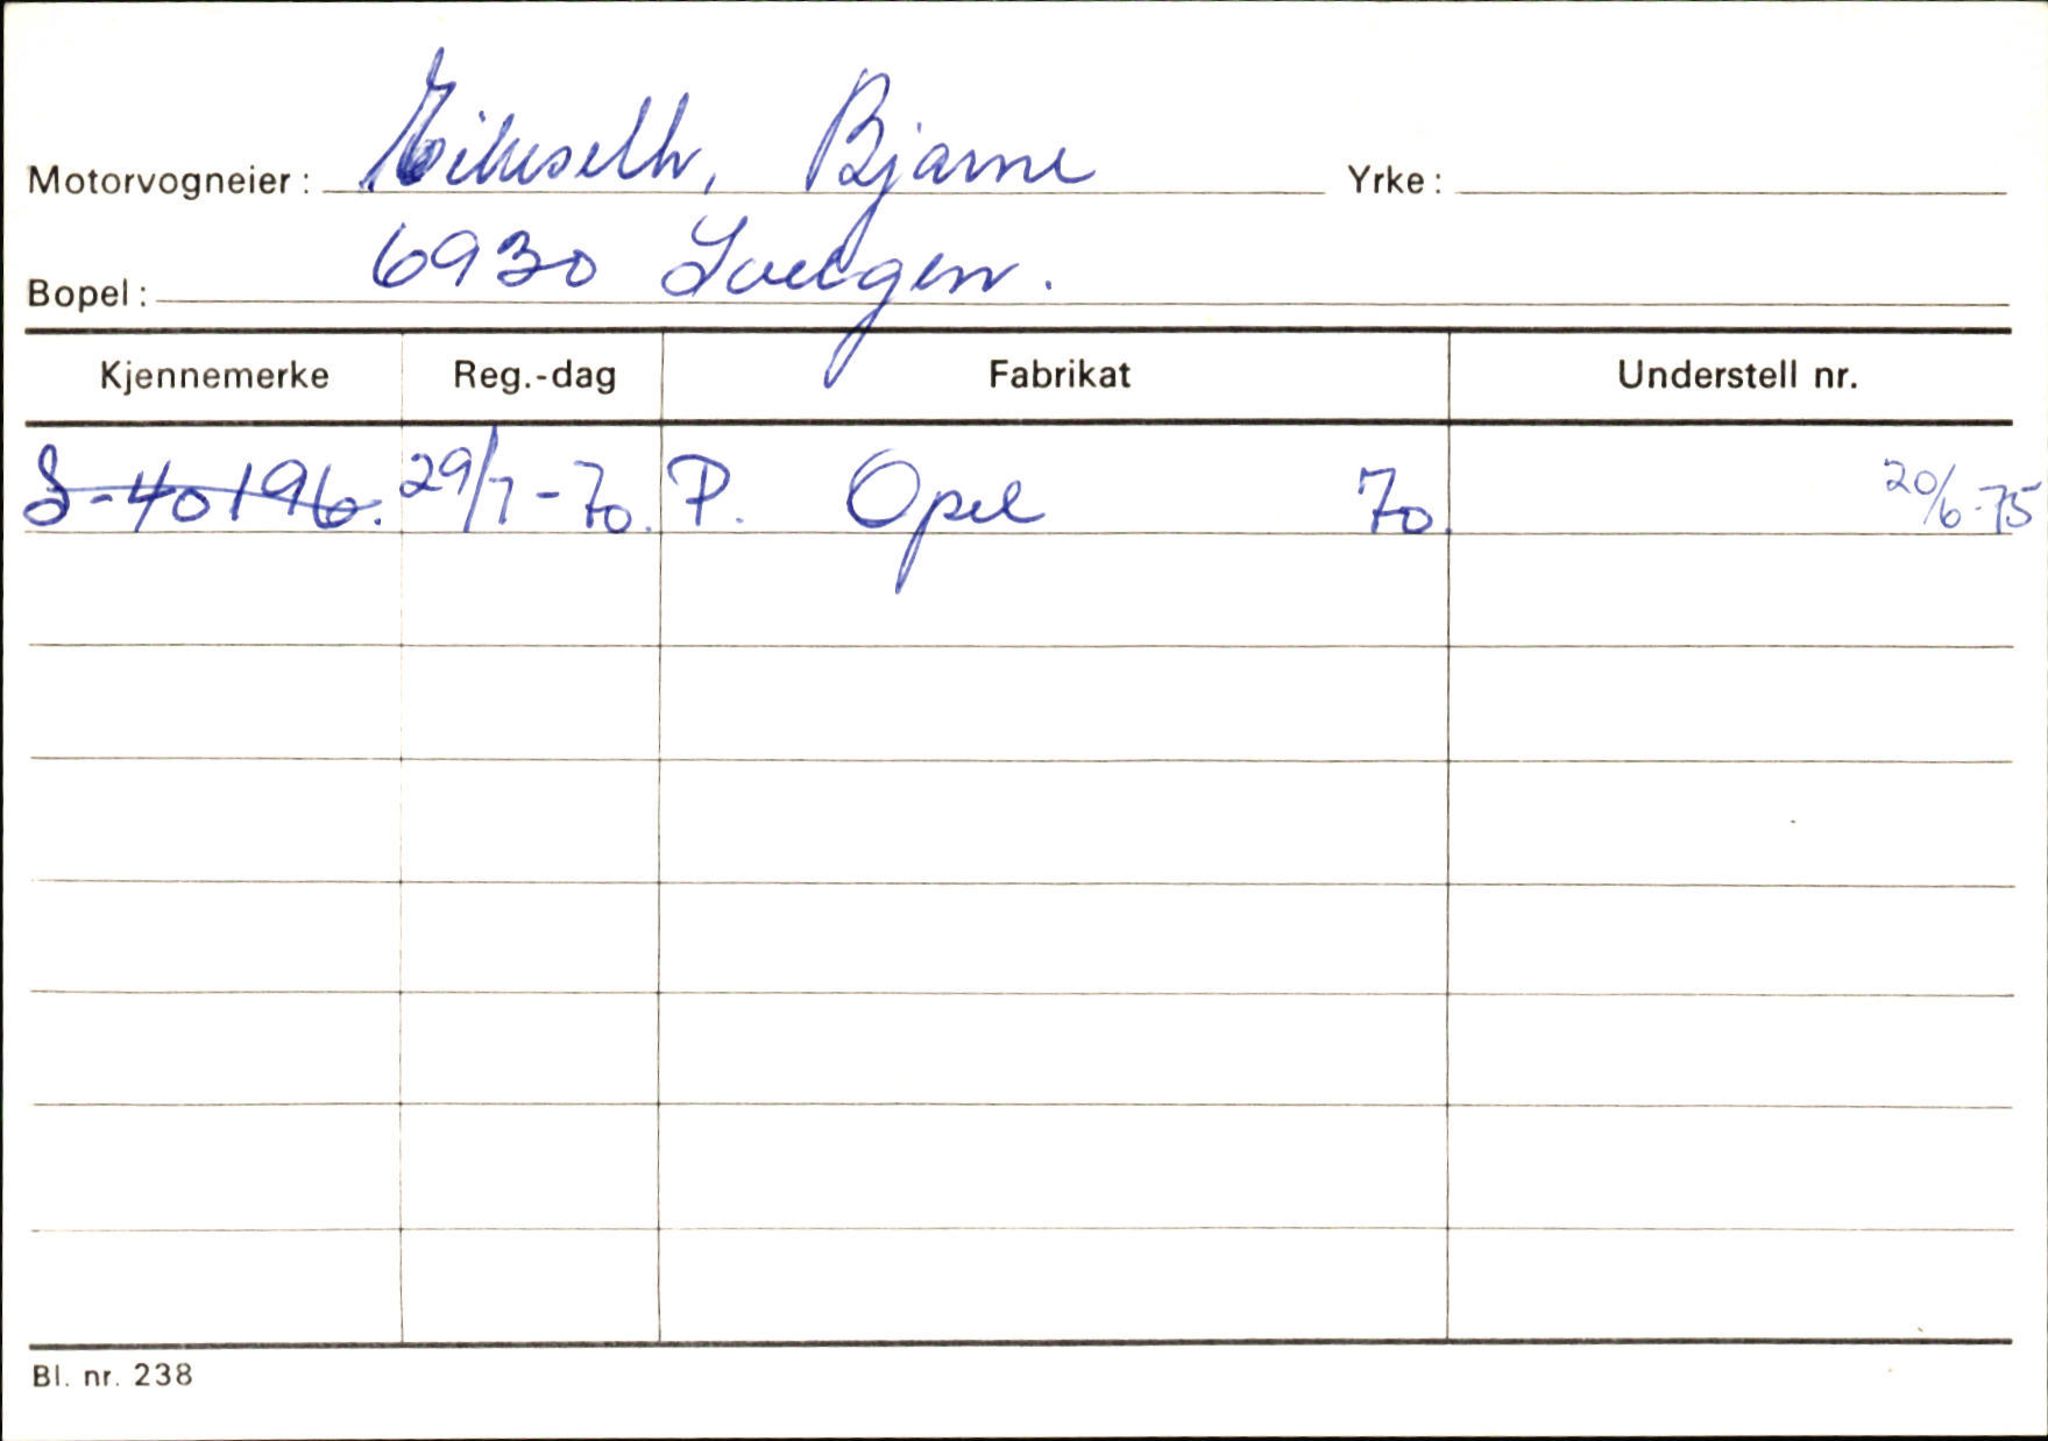 Motorvogneier: Eikeseth, Bjarne Yrke:
Bopel: 6930 Svelgen.
Kjennemerke Reg.-dag Fabrikat Understell nr.
S-40196. 29/7-70. P. Opel 70. 20/6-75
Bl. nr. 238